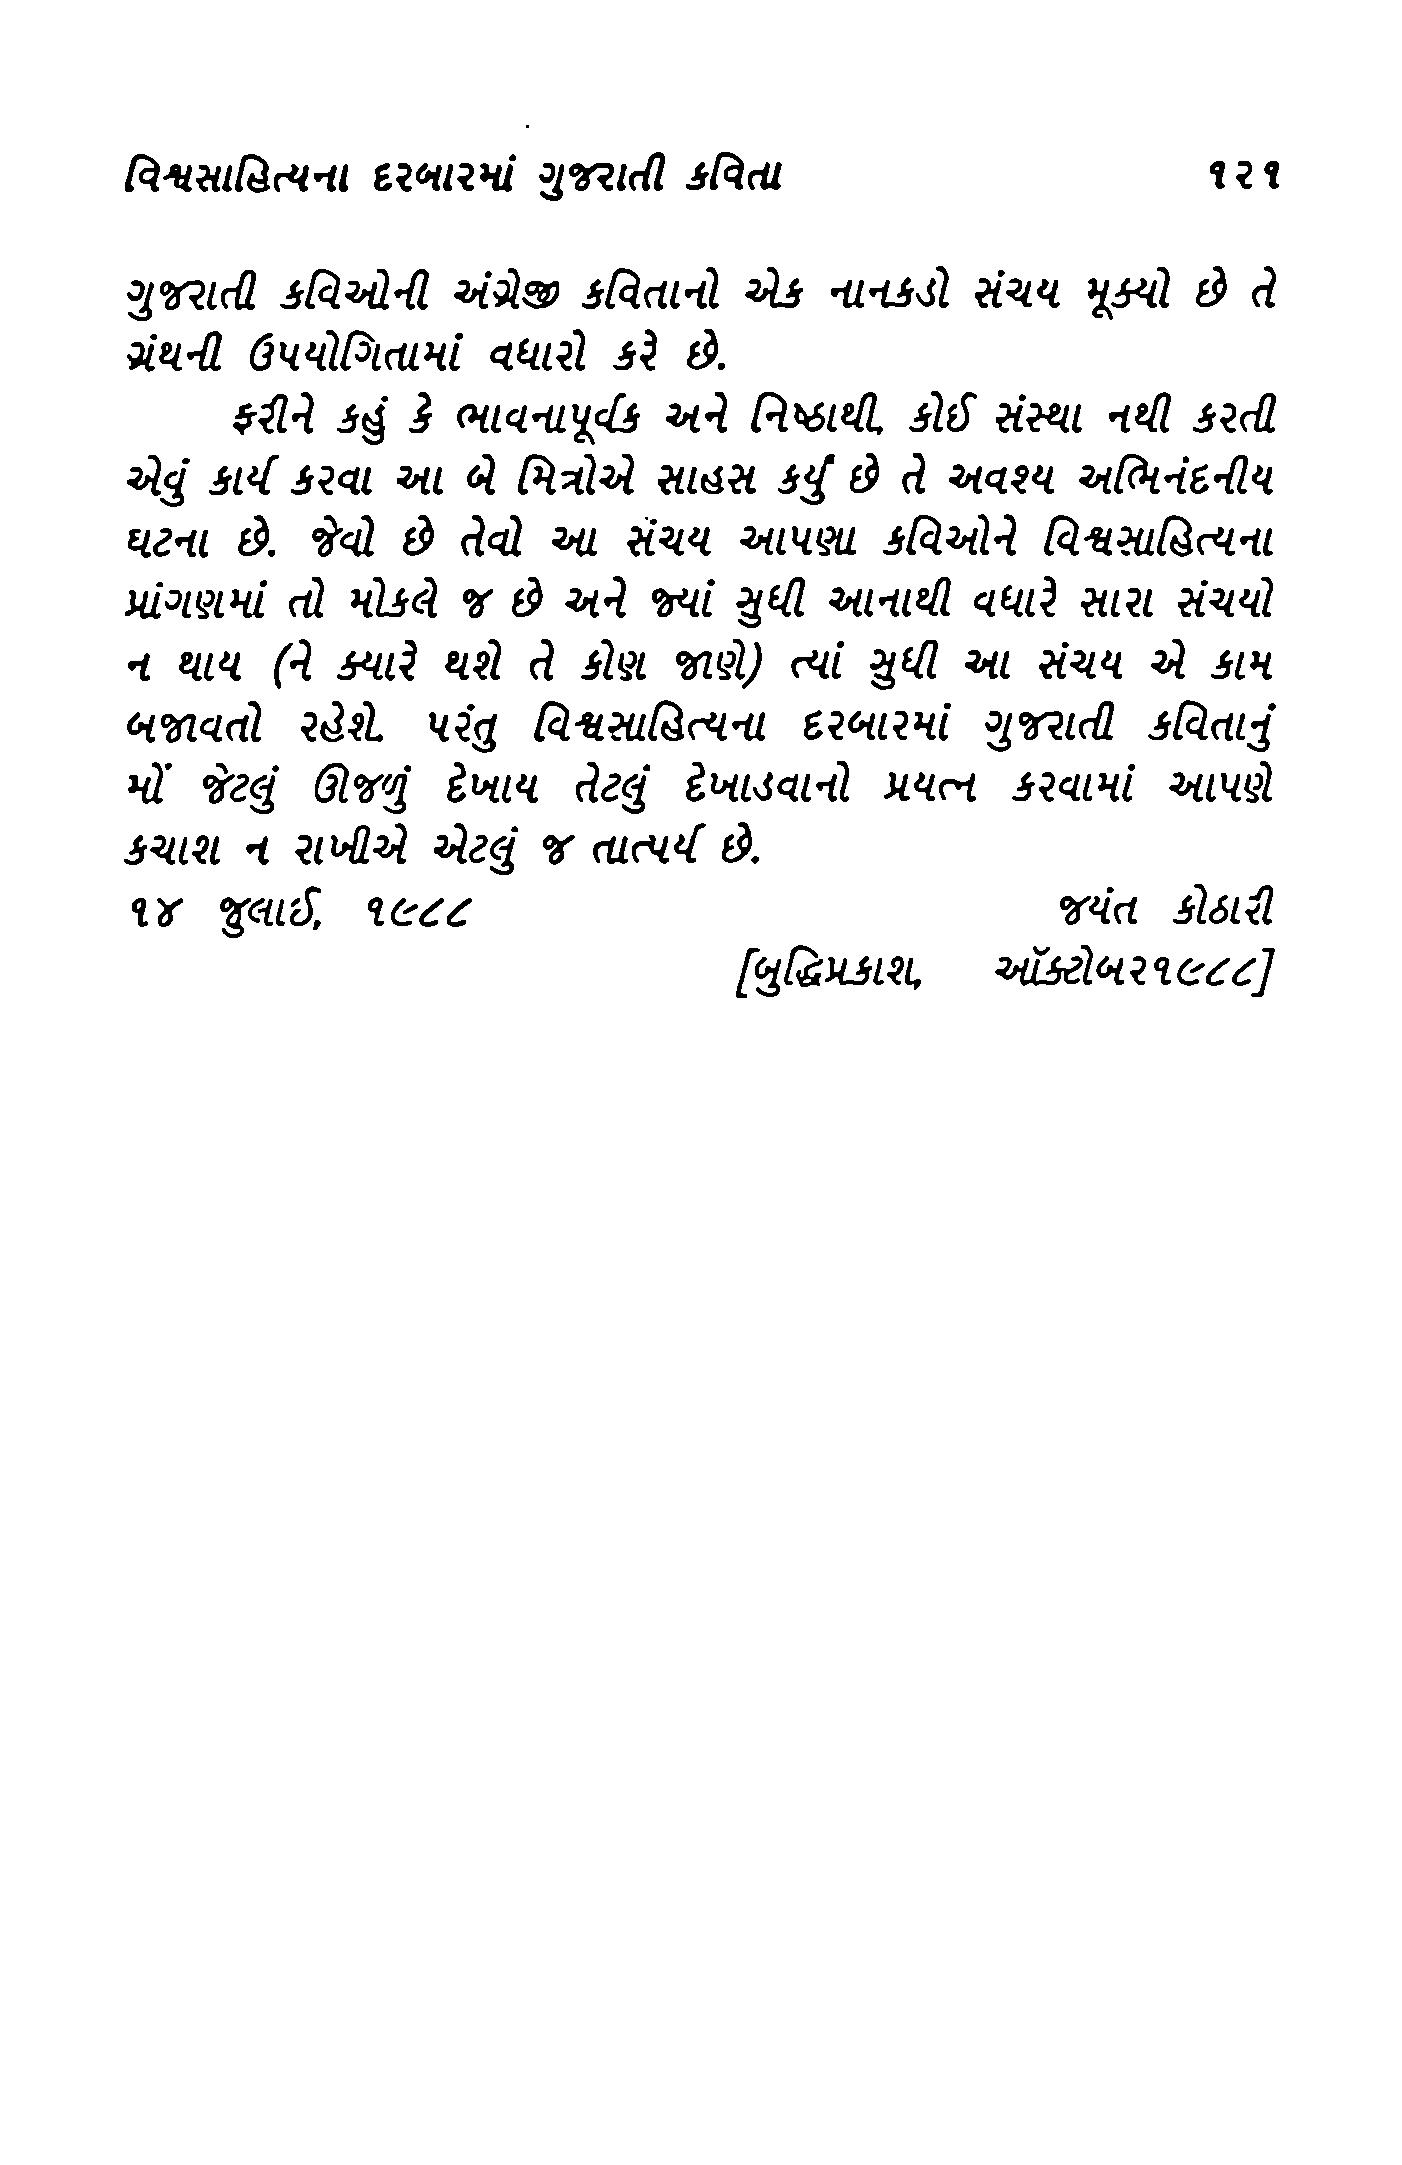 વિશ્વસાહિત્યના દરબારમાં ગુજરાતી કવિતા ૧૨૧
ગુજરાતી કવિઓની અંગ્રેજી કવિતાનો એક નાનકડો સંચય મૂક્યો છે તે
ગ્રંથની ઉપયોગિતામાં વધારો કરે છે.
ફરીને કહું કે ભાવનાપૂર્વક અને નિષ્ઠાથી, કોઈ સંસ્થા નથી કરતી
એવું કાર્ય કરવા આ બે મિત્રોએ સાહસ કર્યું છે તે અવશ્ય અભિનંદનીય
ઘટના છે. જેવો છે તેવો આ સંચય આપણા કવિઓને વિશ્વસાહિત્યના
પ્રાંગણમાં તો મોકલે જ છે અને જ્યાં સુધી આનાથી વધારે સારા સંચયો
ન થાય (ને ક્યારે થશે તે કોણ જાણે) ત્યાં સુધી આ સંચય એ કામ
બજાવતો રહેશે. પરંતુ વિશ્વસાહિત્યના દરબારમાં ગુજરાતી કવિતાનું
મોં જેટલું ઊજળું દેખાય તેટલું દેખાડવાનો પ્રયત્ન કરવામાં આપણે
કચાશ ન રાખીએ એટલું જ તાત્પર્ય છે.
૧૪ જુલાઈ, ૧૯૮૮ જયંત કોઠારી
[બુદ્ધિપ્રકાશ, ઑક્ટોબર૧૯૮૮]